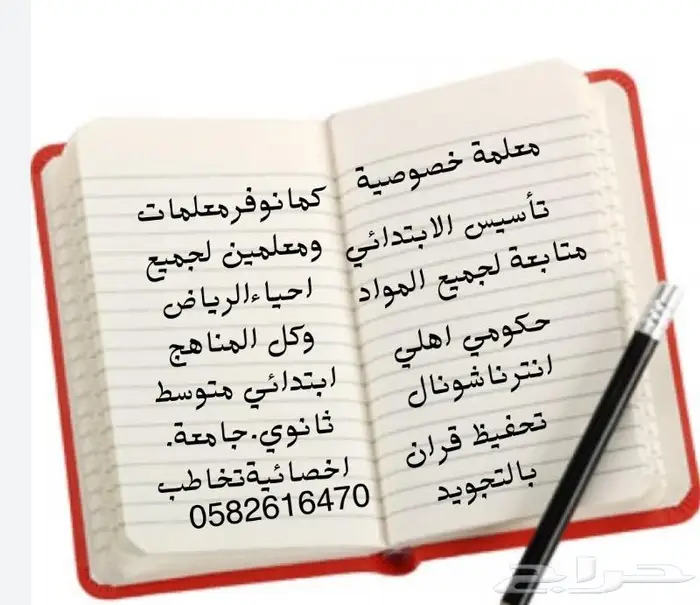 معلمة خصوصية
تأسيس الابتدائي
متابعة لجميع المواد
حكومي اهلي
انترناشونال
تحفيظ قران
بالتجويد
كمانوفرمعلمات
ومعلمين لجميع
احياءالرياض
وكل المناهج
ابتدائي متوسط
ثانوي.جامعة.
اخصائيةتخاطب
0582616470
حراج